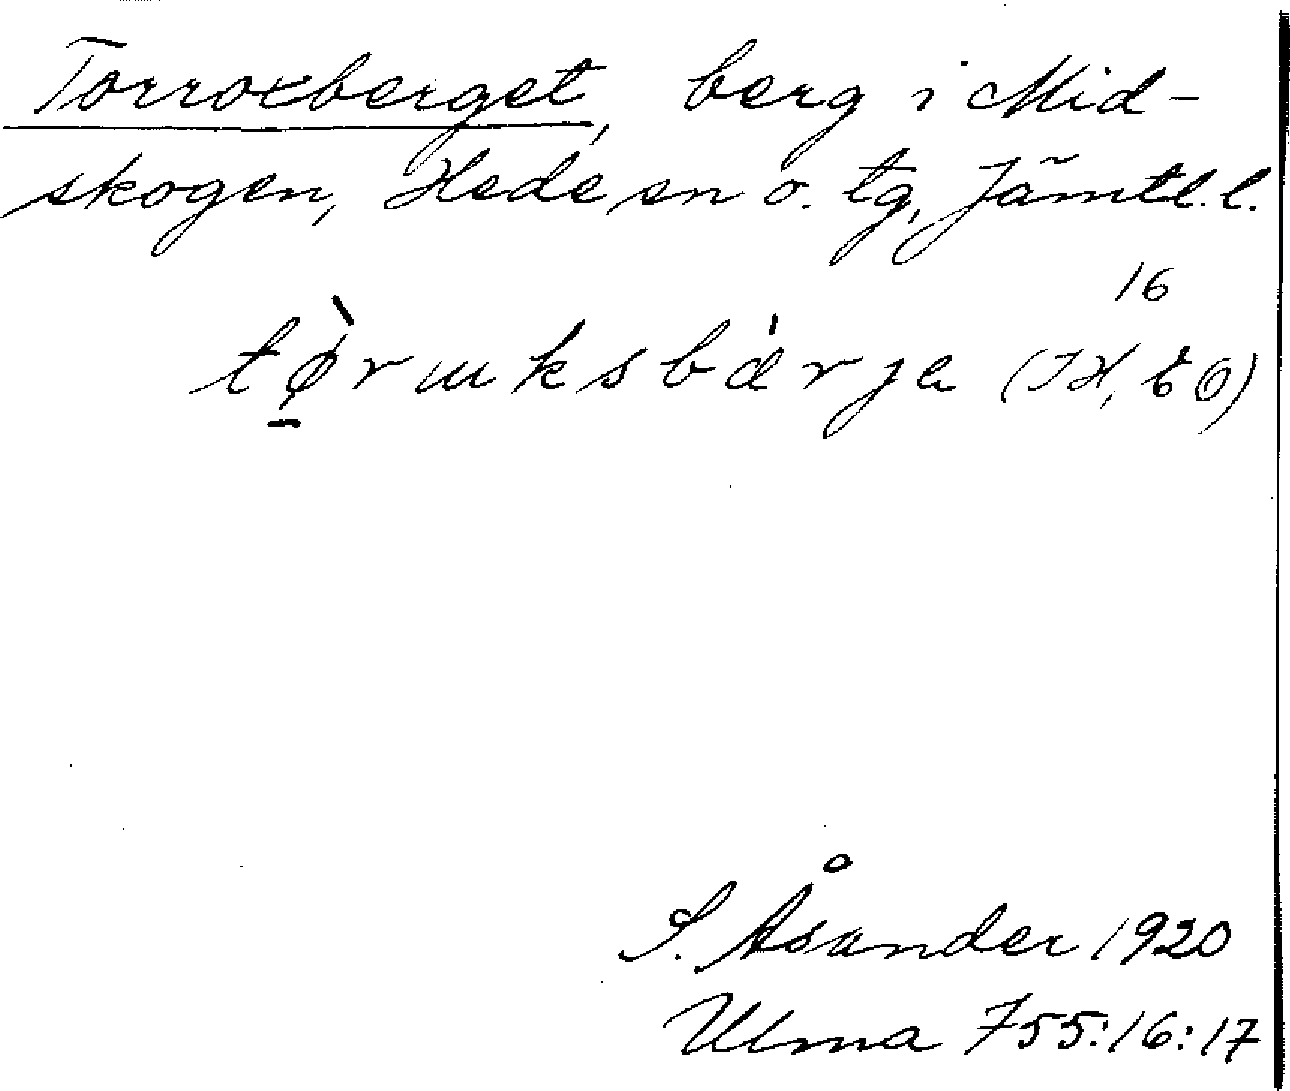 Torroxberget, berg i Mid-
skogen, Hede sn o. tg, Jämtl. l.
16
tø̀rɯksbàrja (JH, EO)
S. Åsander 1920
Ulma 755:16:17